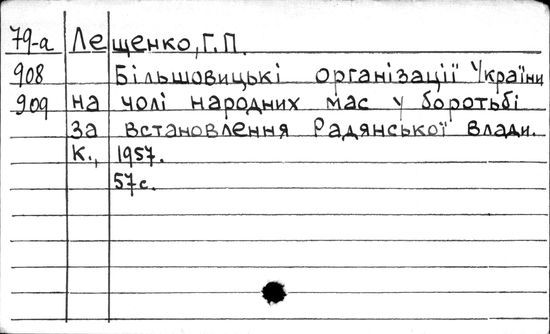 79-а Лещенко, Г.П.
908 Більшовицькі організації України
909 на чолі народних мас у боротьбі
за встановлення Радянської влади.
К., 1957.
57с.